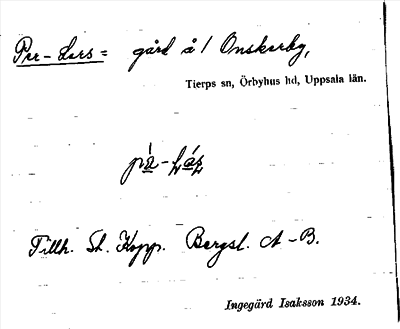 Per-Lars = gård å / Onskarby,
Tierps sn, Örbyhus hd, Uppsala län.
Tillh. St. Kopp. Bergsl. A-B.
Ingegärd Isaksson 1934.